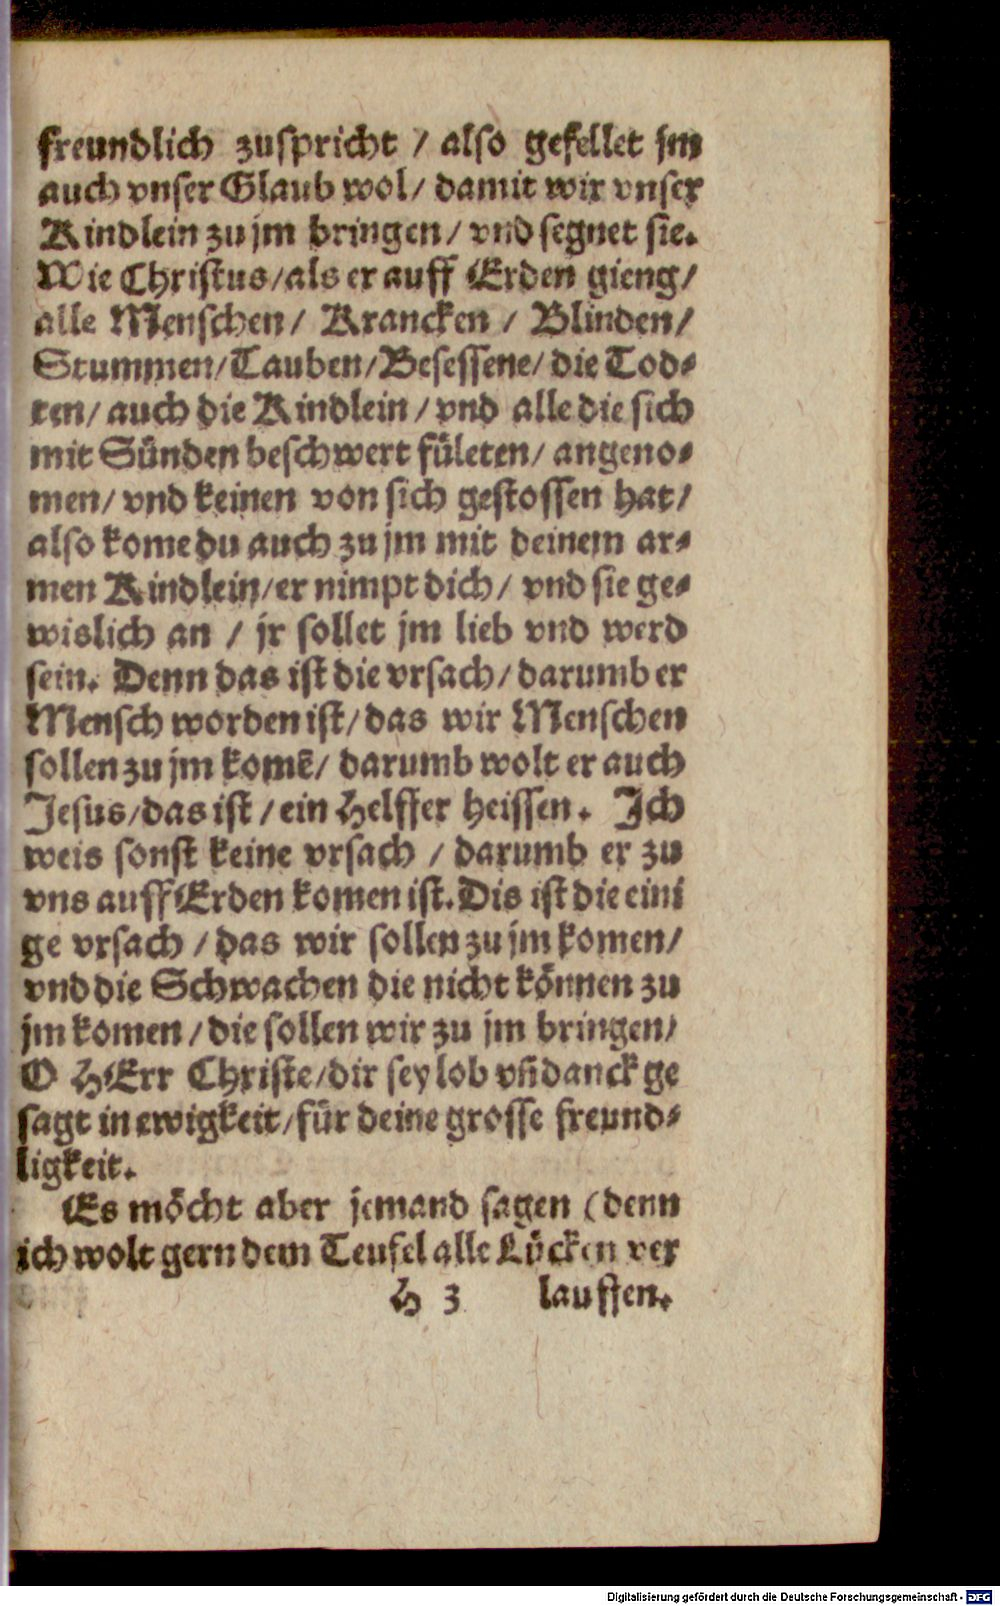 freundlich zuspricht / also gefellet jm
auch vnser Glaub wol / damit wir vnser
Kindlein zu jm bringen / vnd segnet sie.
Wie Christus / als er auff Erden gieng /
alle Menschen / Krancken / Blinden /
Stummen / Tauben / Besessene / die Tod⸗
ten / auch die Kindlein / vnd alle die sich
mit Sünden beschwert fületen / angeno⸗
men / vnd keinen von sich gestossen hat /
also kome du auch zu jm mit deinem ar⸗
men Kindlein / er nimpt dich / vnd sie ge⸗
wislich an / jr sollet jm lieb vnd werd
sein. Denn das ist die vrsach / darumb er
Mensch worden ist / das wir Menschen
sollen zu jm komẽ / darumb wolt er auch
Jesus / das ist / ein Helffer heissen. Ich
weis sonst keine vrsach / darumb er zu
vns auff Erden komen ist. Dis ist die eini
ge vrsach / das wir sollen zu jm komen /
vnd die Schwachen die nicht können zu
jm komen / die sollen wir zu jm bringen /
O HErr Christe / dir sey lob vñ danck ge
sagt in ewigkeit / für deine grosse freund⸗
ligkeit.
Es möcht aber jemand sagen (denn
ich wolt gern dem Teufel alle Lücken ver
H 3 lauffen.
Digitalisierung gefördert durch die Deutsche Forschungsgemeinschaft - DFG